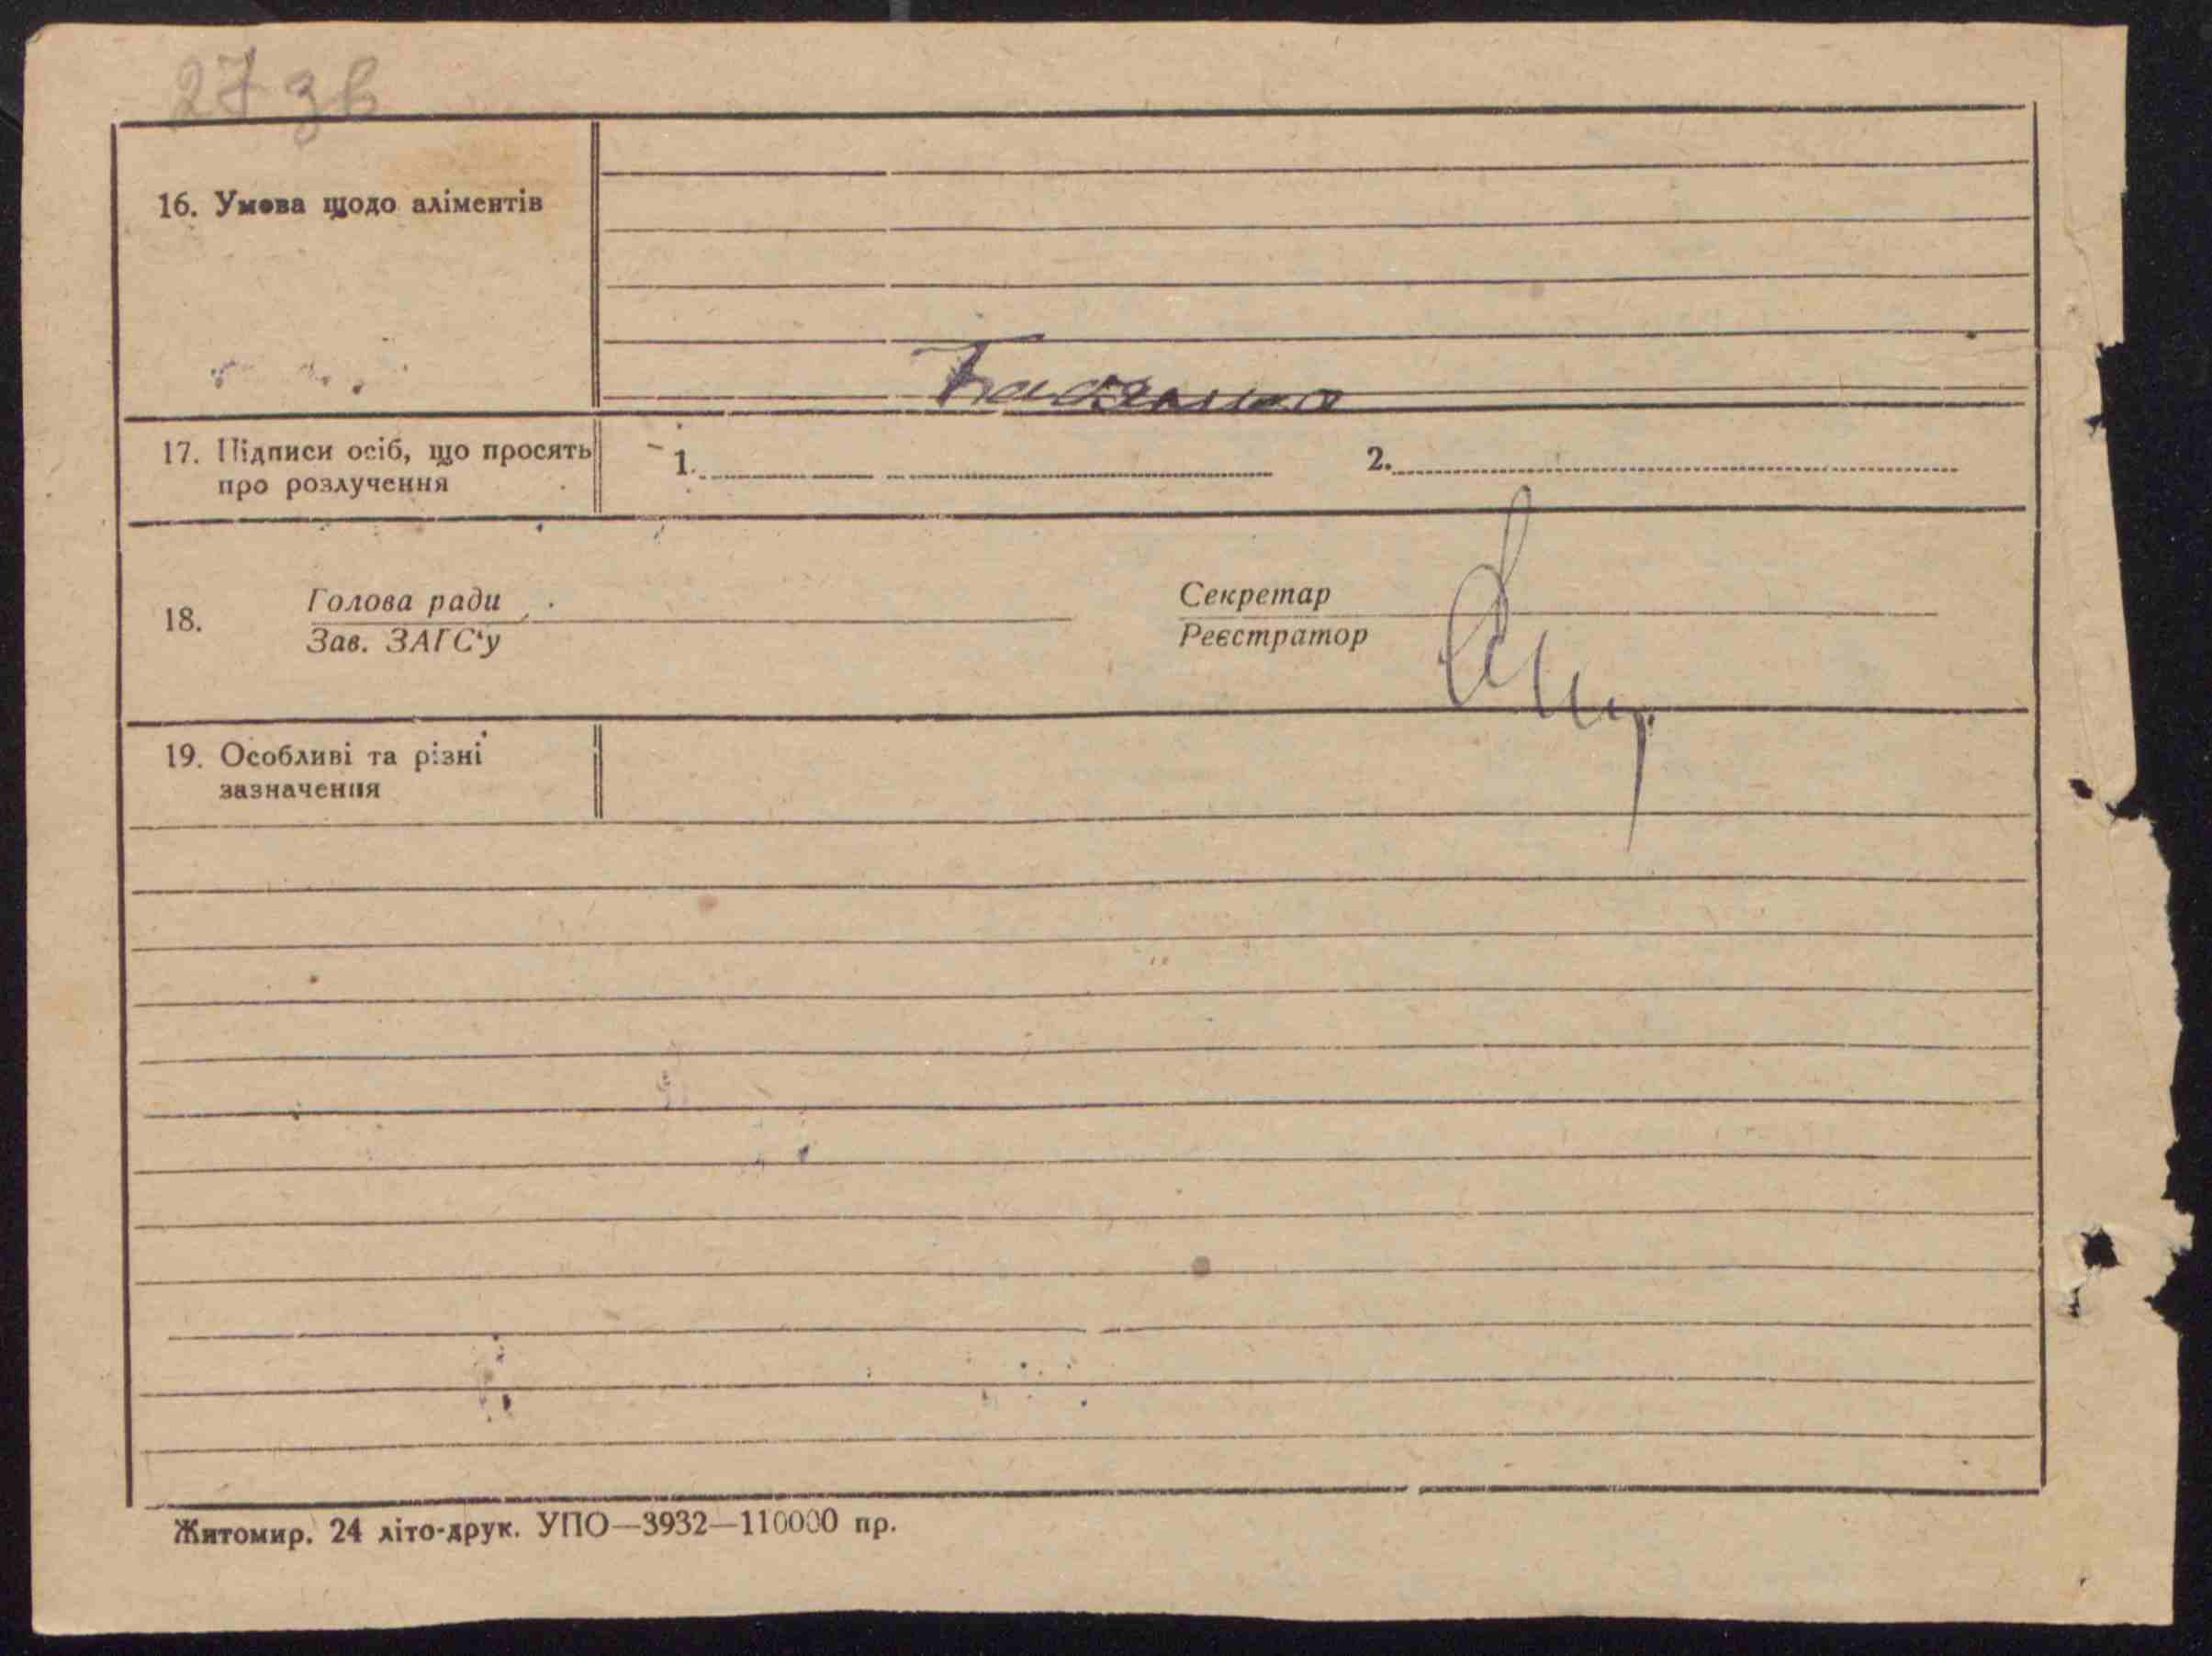 27 зв
16. Умова щодо аліментів
17. Підписи осіб, що просять про розлучення
1.
2.
18.
Голова ради
Зав. ЗАГС'у
Секретар
Реєстратор
19. Особливі та різні
зазначення
Житомир. 24 літо-друк. УПО—3932—110000 пр.